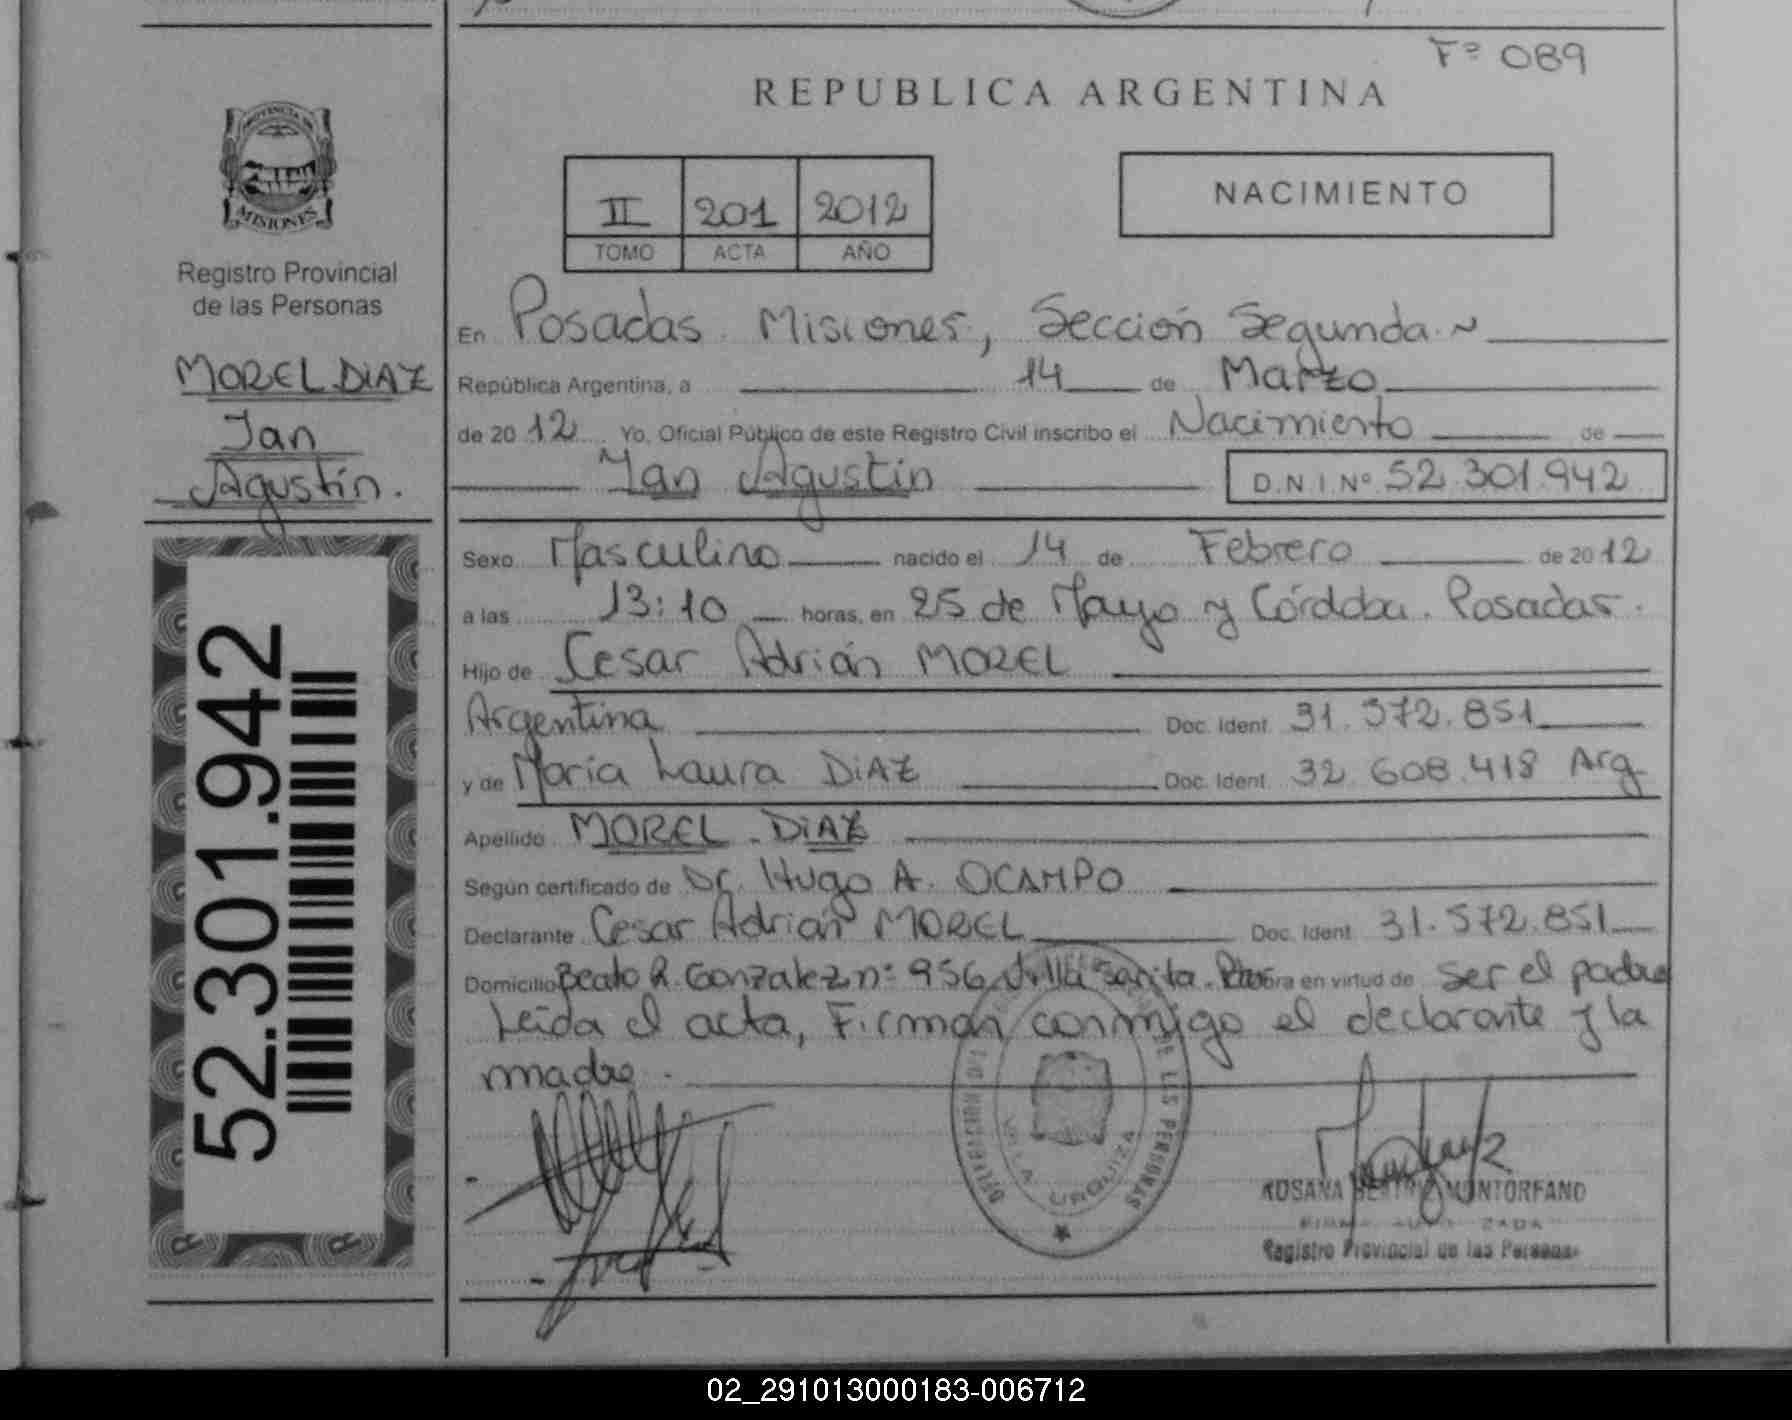 Fº 089
REPUBLICA ARGENTINA
PROVINCIA DE
MISIONES
Registro Provincial
de las Personas
MOREL DIAZ
Ian
Agustín.
52.301.942
II 201 2012
TOMO ACTA AÑO
NACIMIENTO
En Posadas. Misiones, Sección Segunda.~
República Argentina, a 14 de Marzo
de 2012 Yo, Oficial Público de este Registro Civil inscribo el Nacimiento de
Ian Agustín D.N.I.Nº 52.301.942
Sexo Masculino nacido el 14 de Febrero de 2012
a las 13:10 horas, en 25 de Mayo y Córdoba. Posadas.
Hijo de Cesar Adrián MOREL
Argentina Doc. Ident. 31.572.851
y de María Laura DiAZ Doc. Ident. 32.608.418 Arg
Apellido MOREL - DiAZ
Según certificado de Dr. Hugo A. OCAMPO
Declarante Cesar Adrián MOREL Doc. Ident. 31.572.851
Domicilio Beato R. Gonzalez nº 956 Villa Sarita. obra en virtud de ser el padre
Leída el acta, Firman conmigo el declarante y la
madre.
DE LAS PERSONAS
VILLA URQUIZA
ROSANA BEATRIZ MONTORFANO
FIRMA AUTORIZADA
Registro Provincial de las Personas
02_291013000183-006712